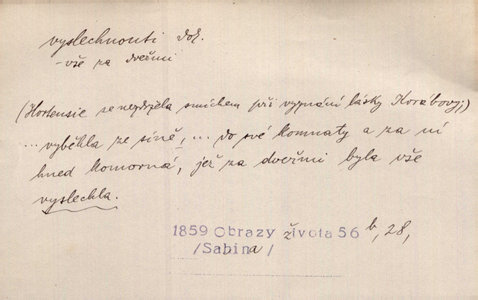 vyslechnouti dok.
- vše za dveřmi
(Hortensie se nezdržela smíchem při vyznání lásky Korábovy;)
... vyběhla ze síně, ... do své komnaty a za ní
hned komorná, jež za dveřmi byla vše
vyslechla.
1859 Obrazy života 56 b, 28,
/Sabina/